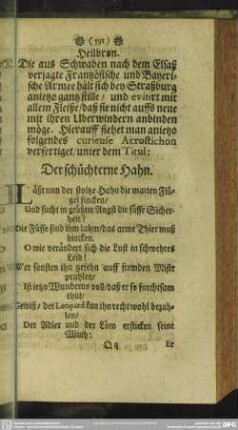 ( 191 )
Heilbron.
Die aus Schwaben nach dem Elsaß
verjagte Frantzösische und Bayeri-
sche Armee hält sich bey Straßburg
anietzo gantz stille / und evitirt mit
allem Fleiße / daß sie nicht auffs neue
mit ihren Uberwindern anbinden
möge. Hierauff siehet man anietzo
folgendes curieuse Acrostichon
verfertiget, unter dem Titul:
Der schüchterne Hahn.
Läßt nun der stoltze Hahn die matten Flü-
gel sincken /
Und sucht in gröster Angst die süsse Sicher-
heit?
Die Füsse sind ihm lahm / das arme Thier muß
hincken.
O wie verändert sich die Lust in schwehres
Leid!
Wer sonsten ihn gesehn auff fremden Miste
prahlen /
Ist ietzo Wunderns voll / daß er so furchtsam
thut /
Gewiß / der Leopard kan ihn recht wohl bezah-
len /
Der Adler und der Löw ersticken seine
Wuth:
Q q